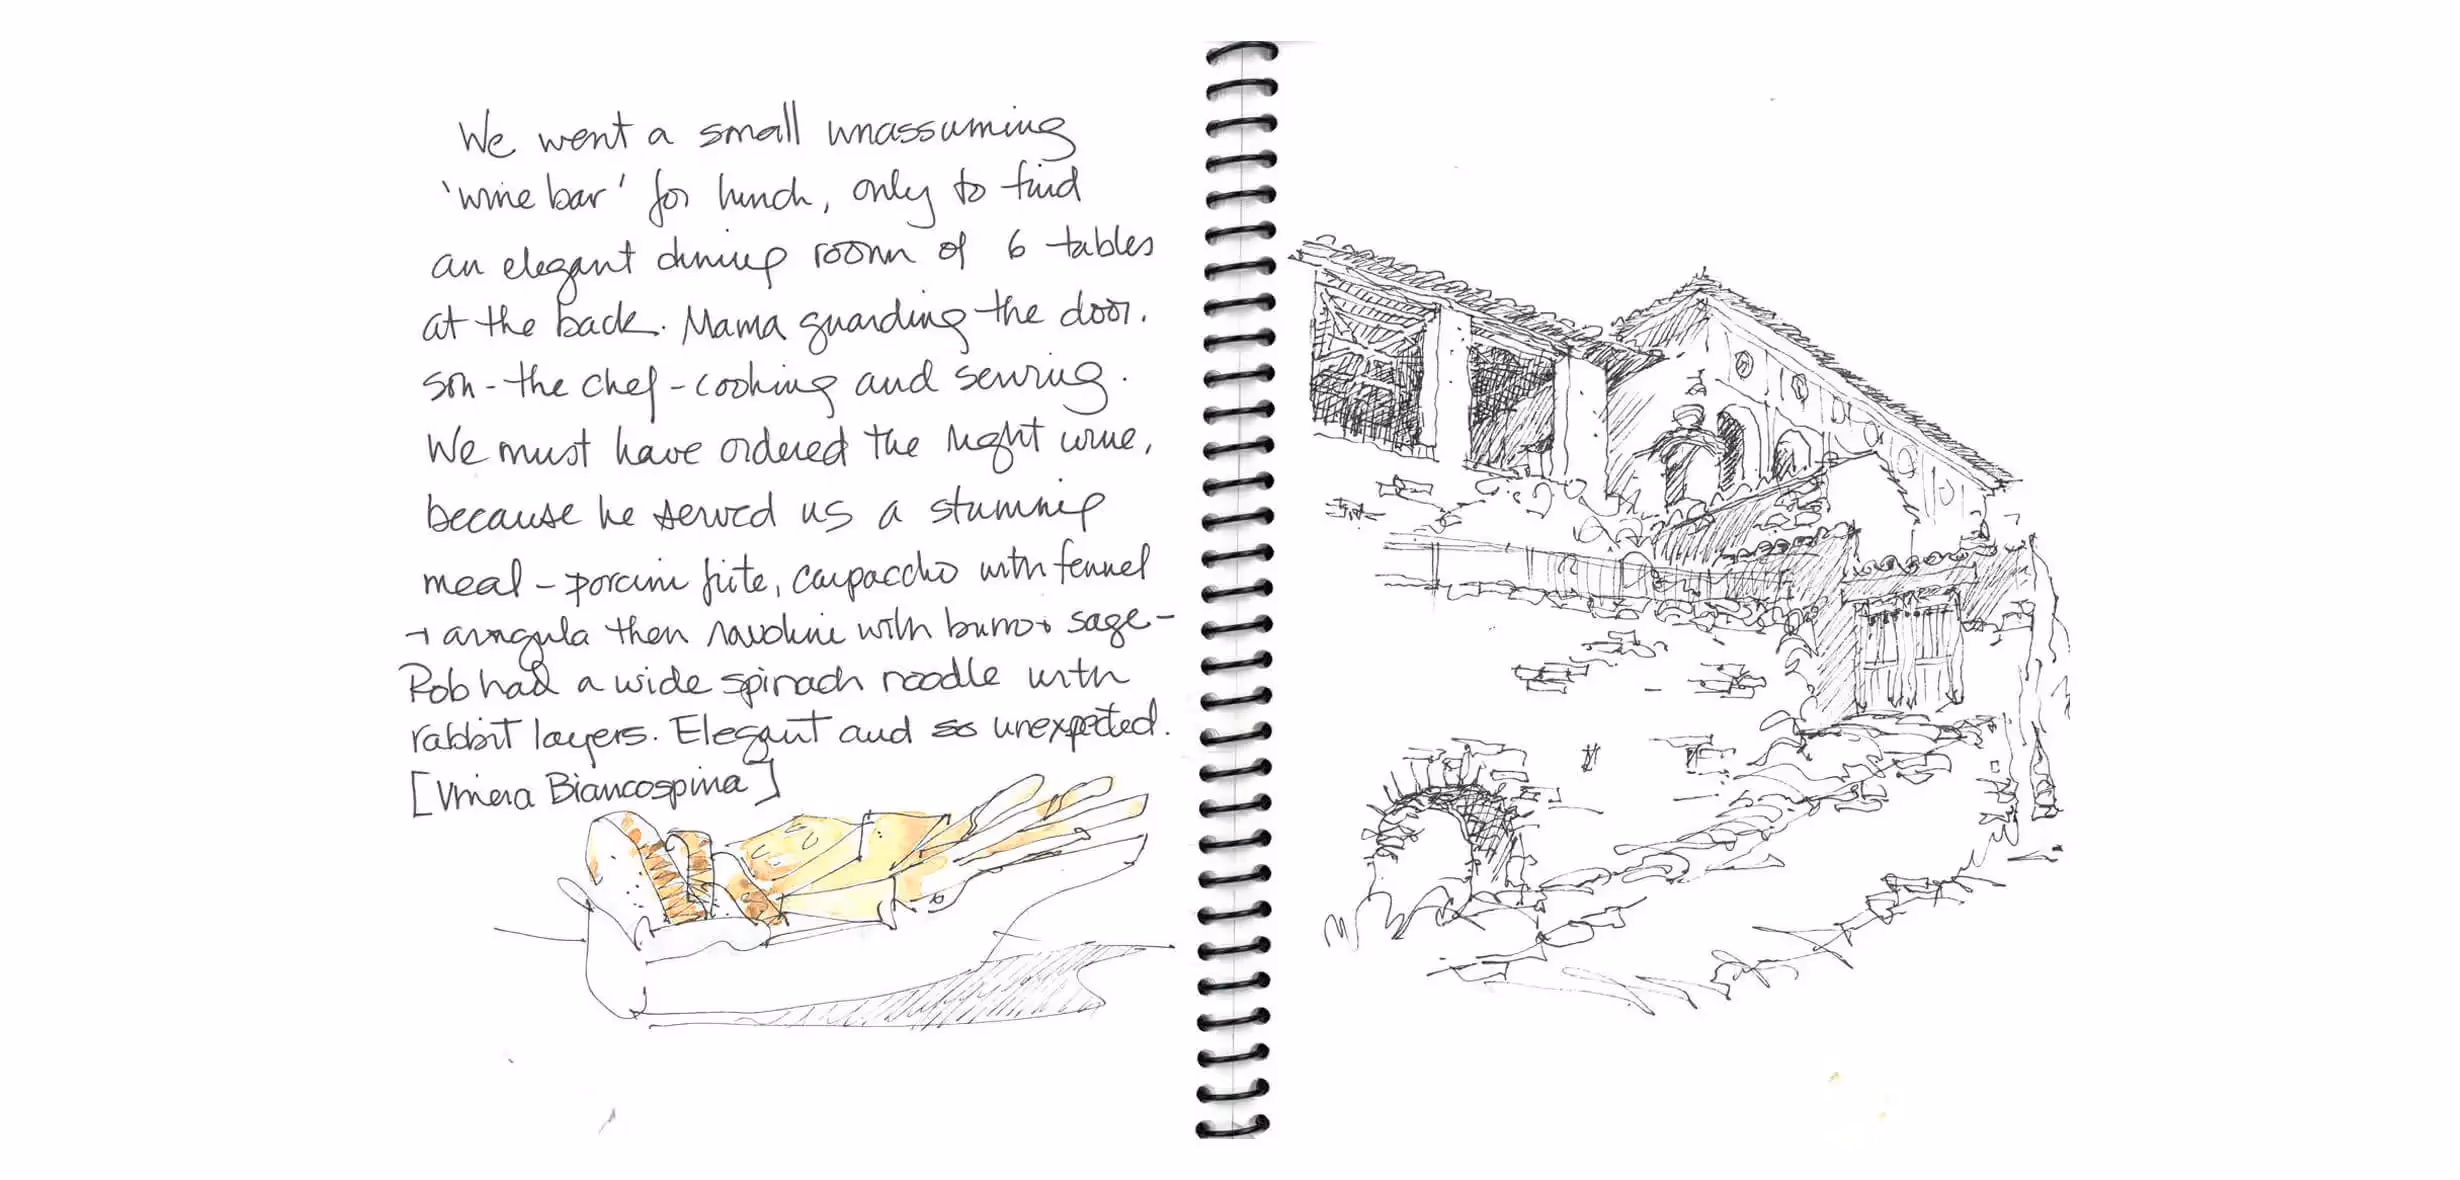 We went a small unassuming
'wine bar' for lunch, only to find
an elegant dining room of 6 tables
at the back. Mama guarding the door.
son - the chef - cooking and serving.
We must have ordered the right wine,
because he served us a stunning
meal - porcini frite, carpaccho with fennel
+ arugula then raviolini with burro + sage -
Rob had a wide spinach noodle with
rabbit layers. Elegant and so unexpected.
[Vineria Biancospina]